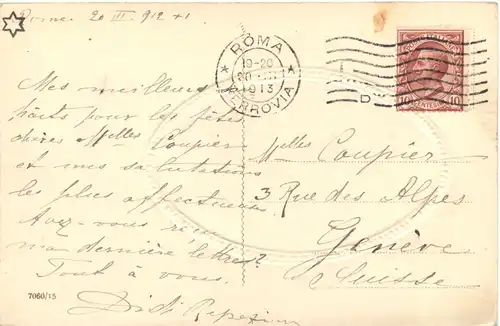 Rome 20 III. 912 + 1
ROMA
19-20
20 III
1913
FERROVIA
POSTE ITALIANE
10 CENTESIMI 10
Mes meilleurs
souhaits pour les fêtes
chères Melles Coupier
et mes salutations
les plus affectueuses
Avez-vous reçu
ma dernière lettre?
Tout à vous.
7060/15
Melles Coupier
3 Rue des Alpes
Genève
Suisse